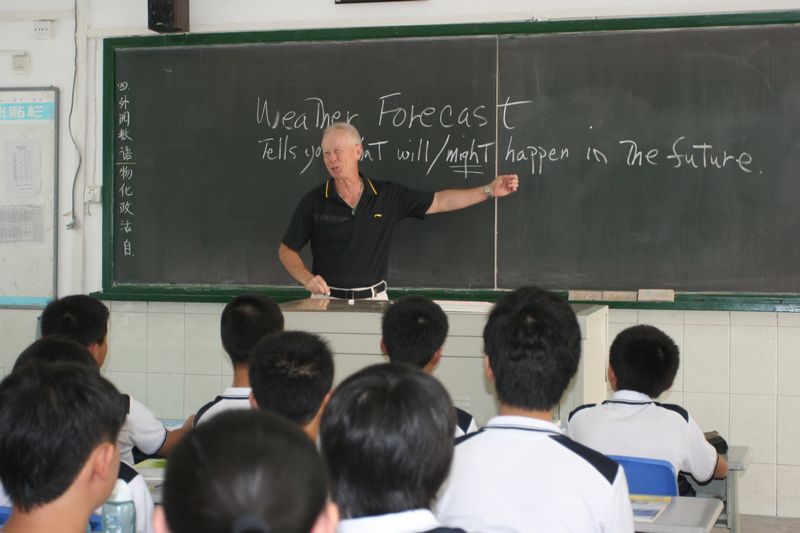 贴栏
四.外阅数语物化政治自.
Weather Forecast
Tells you what will/might happen in the future.